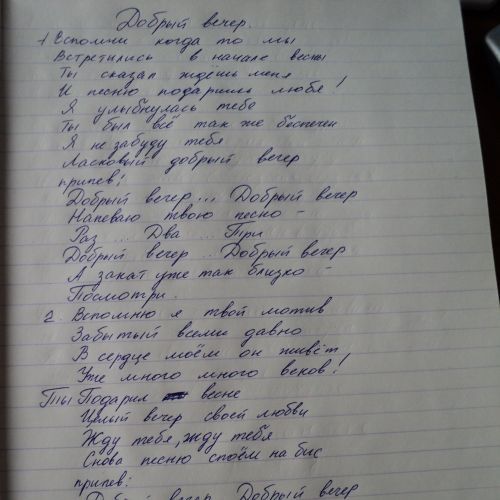 Добрый вечер.
1 Вспомни когда то мы
Встретились в начале весны
Ты сказал ждёшь меня
И песню подаришь любя!
Я улыбнулась тебе
Ты был всё так же беспечен
Я не забуду тебя
Ласковый добрый вечер
припев:
Добрый вечер... Добрый вечер
Напеваю твою песню -
Раз ... Два ... Три
Добрый вечер .. Добрый вечер
А закат уже так близко -
Посмотри.
2. Вспомню я твой мотив
Забытый всеми давно
В сердце моём он живёт
Уже много много веков!
Ты Подарил весне
Целый вечер своей любви
Жду тебя, жду тебя
Снова песню споём на бис
припев:
Добрый вечер Добрый вечер